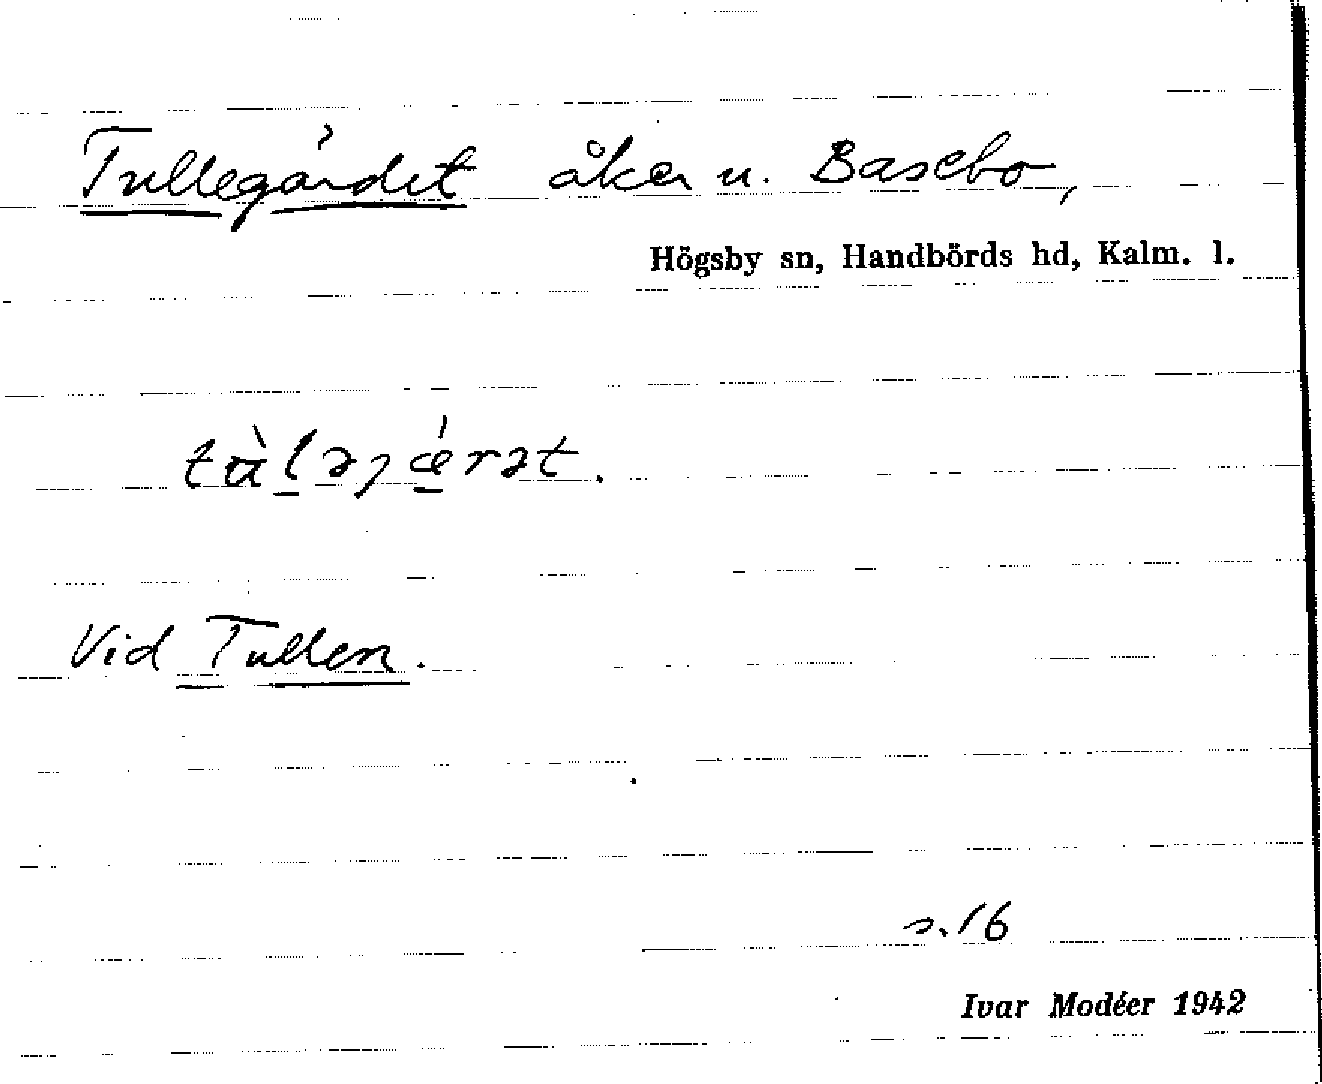 Tullegärdet åker u. Basebo,
Högsby sn, Handbörds hd, Kalm. l.
tàlaȷǽrət.
Vid Tullen.
s. 16
Ivar Modéer 1942